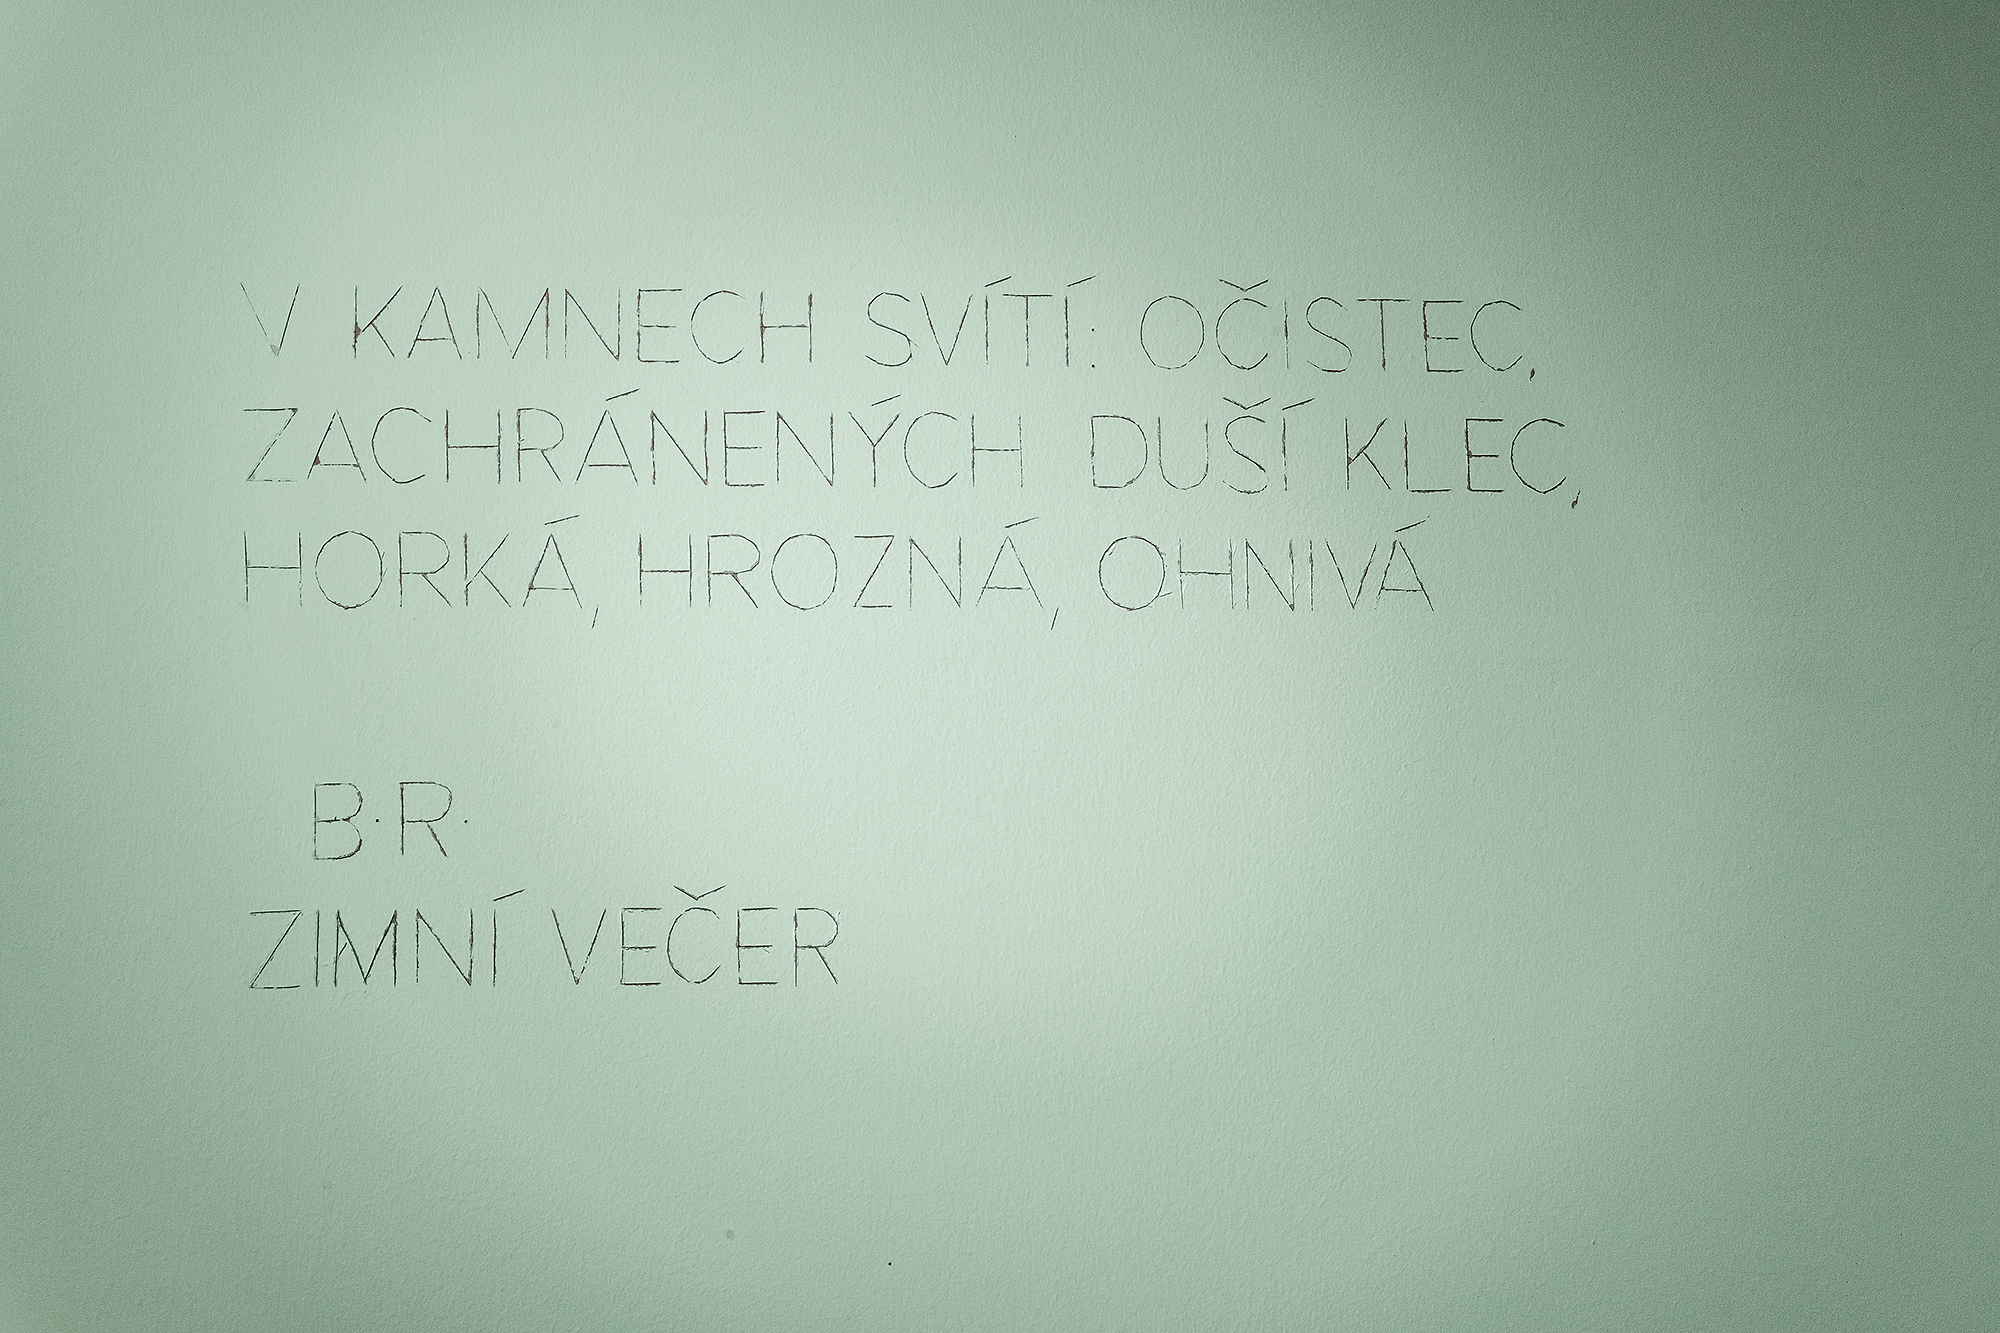 V KAMNECH SVÍTÍ: OČISTEC,
ZACHRÁNENÝCH DUŠÍ KLEC,
HORKÁ, HROZNÁ, OHNIVÁ
B·R·
ZIMNÍ VEČER